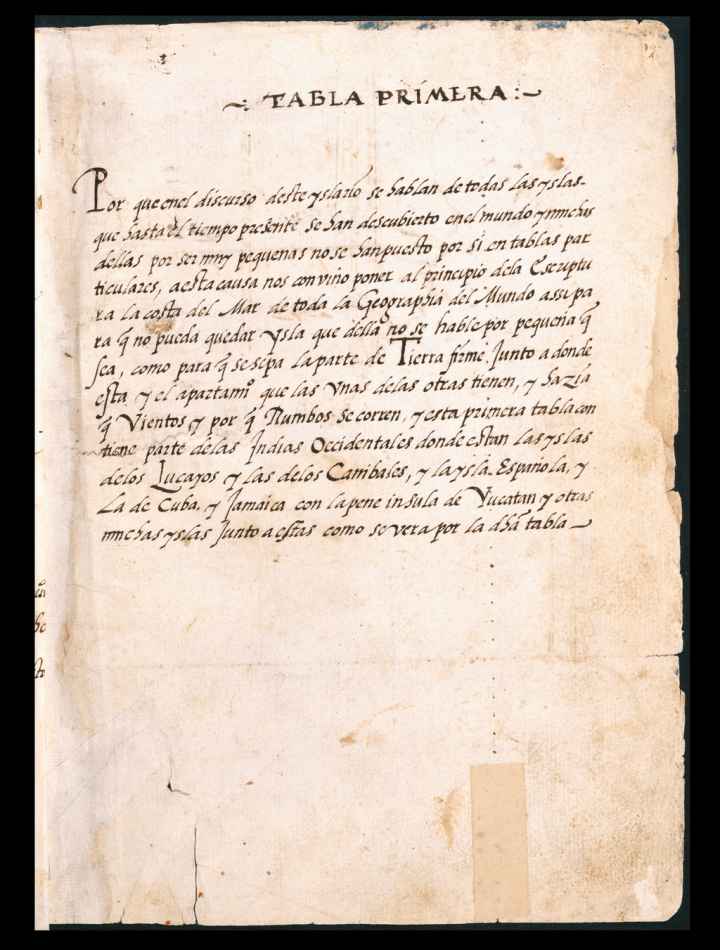 ~: TABLA PRIMERA :~
Por que enel discurso deste yslario se hablan de todas las yslas-
que hasta el tiempo presente se han descubierto enel mundo y muchas
dellas por ser muy pequenas no se han puesto por si en tablas par
ticulares, a esta causa nos convino poner al principio dela Escriptu
ra la costa del Mar de toda la Geographia del Mundo assi pa
ra q̃ no pueda quedar ysla que della no se hable por pequeña q̃
sea, como para q̃ se sepa la parte de Tierra firme Junto a donde
esta y el apartamº que las Vnas delas otras tienen, y hazia
q̃ Vientos y por q̃ Rumbos se corren, y esta primera tabla con
tiene parte delas Indias Occidentales donde estan las yslas
delos Lucayos y las delos Canibales, y la ysla Española, y
La de Cuba, y Jamaica con la pene insula de Yucatan y otras
muchas yslas Junto a estas como se vera por la dhã tabla